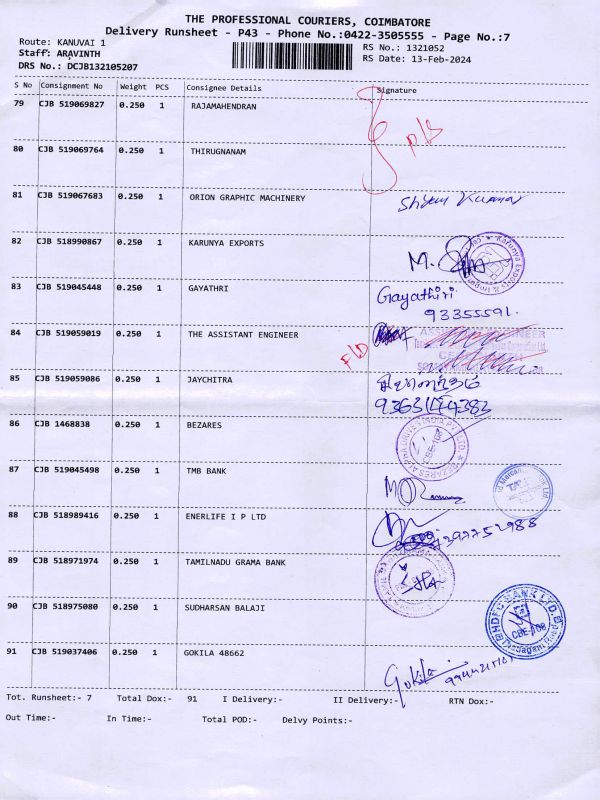 THE PROFESSIONAL COURIERS, COIMBATORE
Delivery Runsheet - P43 - Phone No.:0422-3505555 - Page No.:7
Route: KANUVAI 1
RS No.: 1321052
Staff: ARAVINTH
RS Date: 13-Feb-2024
DRS No.: DCJB132105207
S No Consignment No Weight PCS Consignee Details Signature
79 CJB 519069827 0.250 1 RAJAMAHENDRAN
80 CJB 519069764 0.250 1 THIRUGNANAM
81 CJB 519067683 0.250 1 ORION GRAPHIC MACHINERY
82 CJB 518990867 0.250 1 KARUNYA EXPORTS M.
83 CJB 519045448 0.250 1 GAYATHRI Gayathiri
93355591.
84 CJB 519059019 0.250 1 THE ASSISTANT ENGINEER
85 CJB 519059086 0.250 1 JAYCHITRA
86 CJB 1468838 0.250 1 BEZARES
87 CJB 519045498 0.250 1 TMB BANK
88 CJB 518989416 0.250 1 ENERLIFE I P LTD
89 CJB 518971974 0.250 1 TAMILNADU GRAMA BANK
90 CJB 518975080 0.250 1 SUDHARSAN BALAJI HDFC BANK LTD. CBE-108
91 CJB 519037406 0.250 1 GOKILA 48662 Gokila
Tot. Runsheet:- 7 Total Dox:- 91 I Delivery:- II Delivery:- RTN Dox:-
Out Time:- In Time:- Total POD:- Delvy Points:-